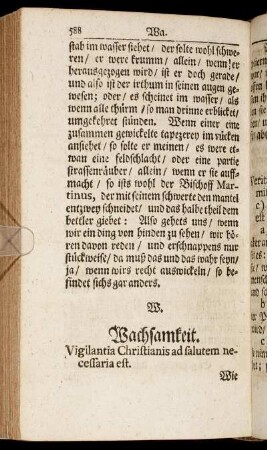 588 Wa.
stab im wasser siehet / der solte wohl schwe-
ren / er were krumm / allein / wenn er
herausgezogen wird / ist er doch gerade /
und also ist der irthum in seinen augen ge-
wesen; oder / es scheinet im wasser / als
wenn alle thürm / so man drinne erblicket /
umgekehret stünden. Wenn einer eine
zusammen gewickelte tapezerey im rücken
ansiehet / so solte er meinen / es were et-
wan eine feldschlacht / oder eine partie
strassenräuber / allein / wenn er sie auff-
macht / so ists wohl der Bischoff Mar-
tinus, der mit seinem schwerte den mantel
entzwey schneidet / und das halbe theil dem
bettler giebet : Also gehets uns / wenn
wir ein ding von hinden zu sehen / wir hö-
ren davon reden / und erschnappens nur
stückweise / da muß das und das wahr seyn /
ja / wenn wirs recht auswickeln / so be-
findet sichs gar anders.
W.
Wachsamkeit.
Vigilantia Christianis ad salutem ne-
cessaria est.
Wie